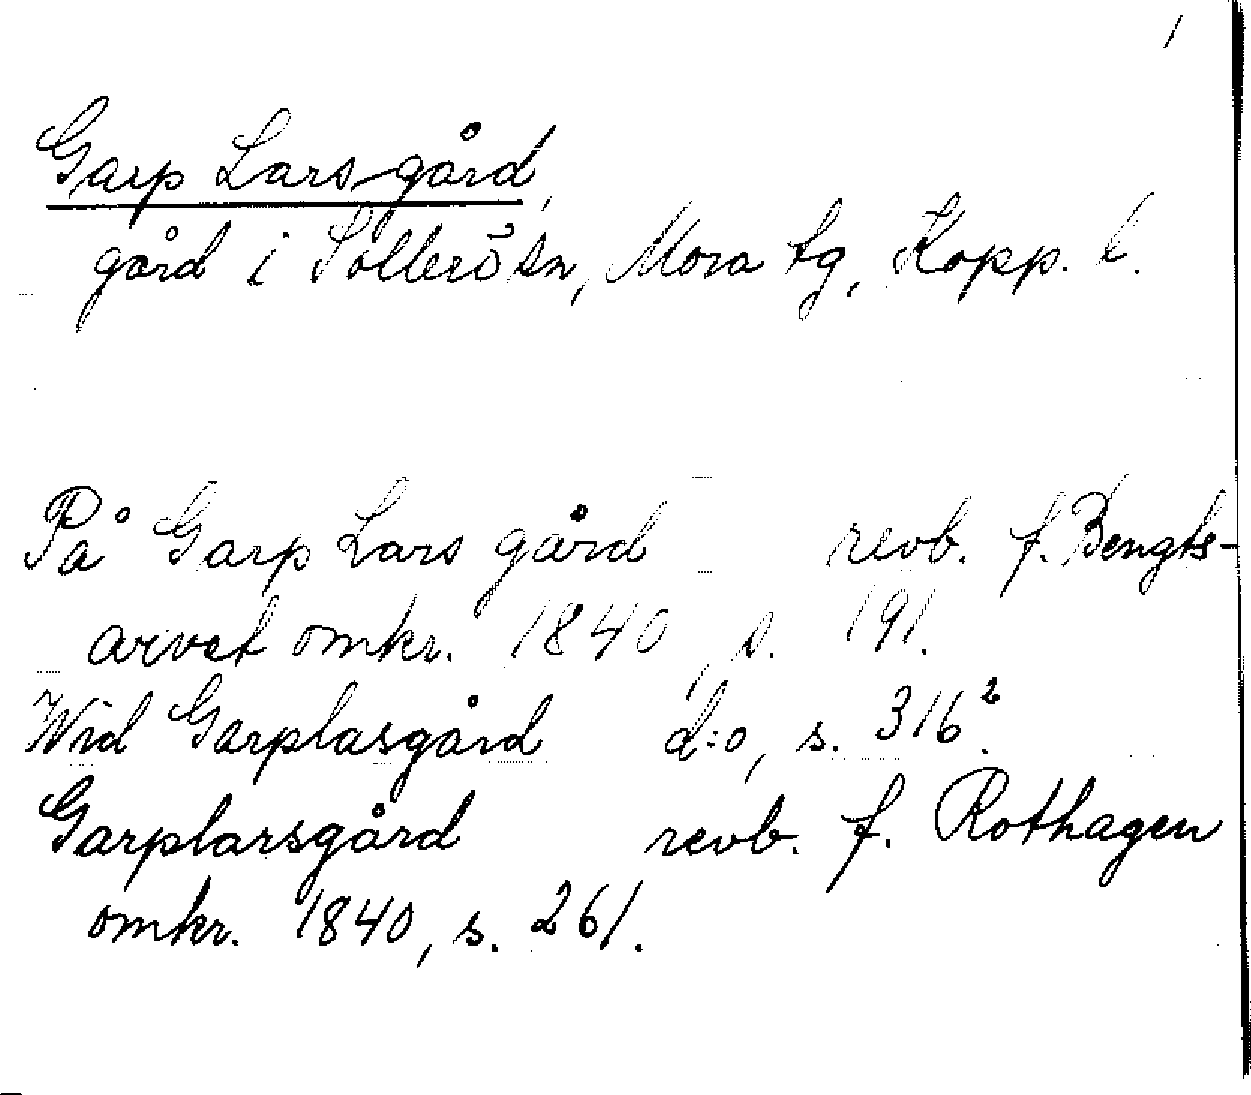 1
Garp Larsgård,
gård i Sollerö sn, Mora tg, Kopp. l.
På Garp Lars gård revb. f. Bengts-
arvet omkr. 1840, s. 191.
Wid Garplasgård d:o, s. 316².
Garplarsgård revb. f. Rothagen
omkr. 1840, s. 261.